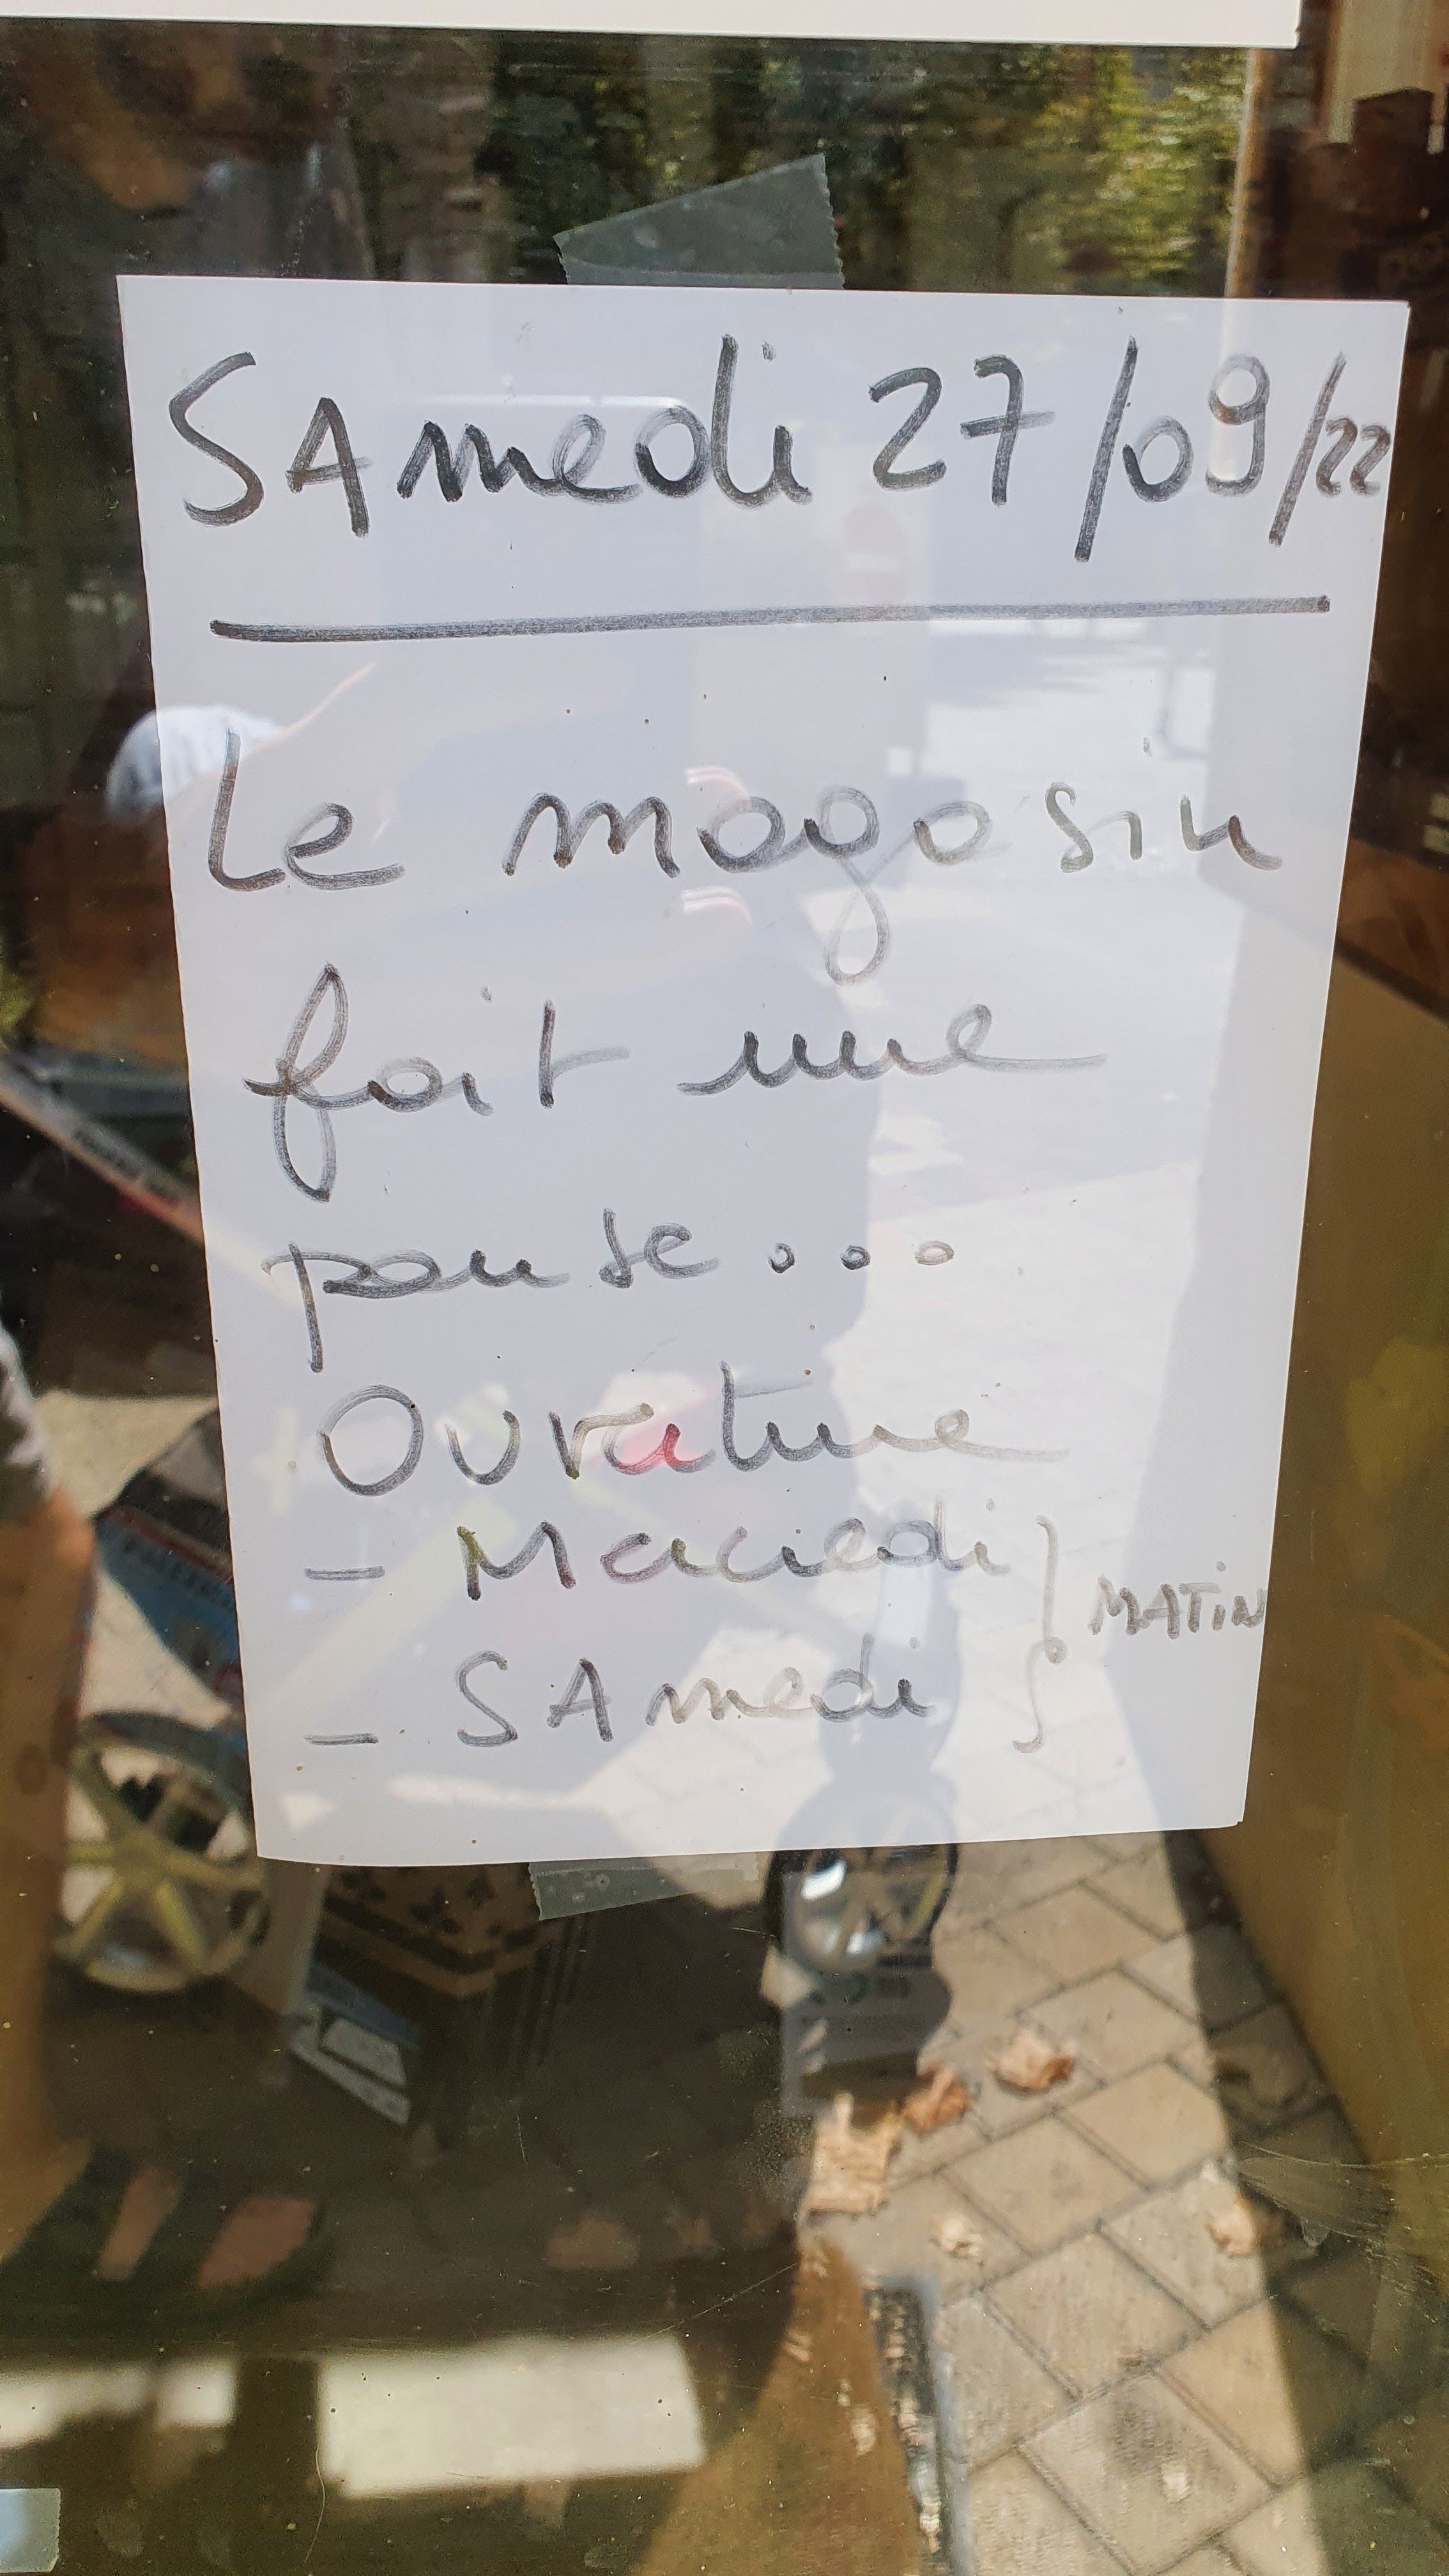 SAmedi 27/09/22
Le magasin
fait une
pause...
Ouverture
- Mercredi
- SAmedi
} MATiN